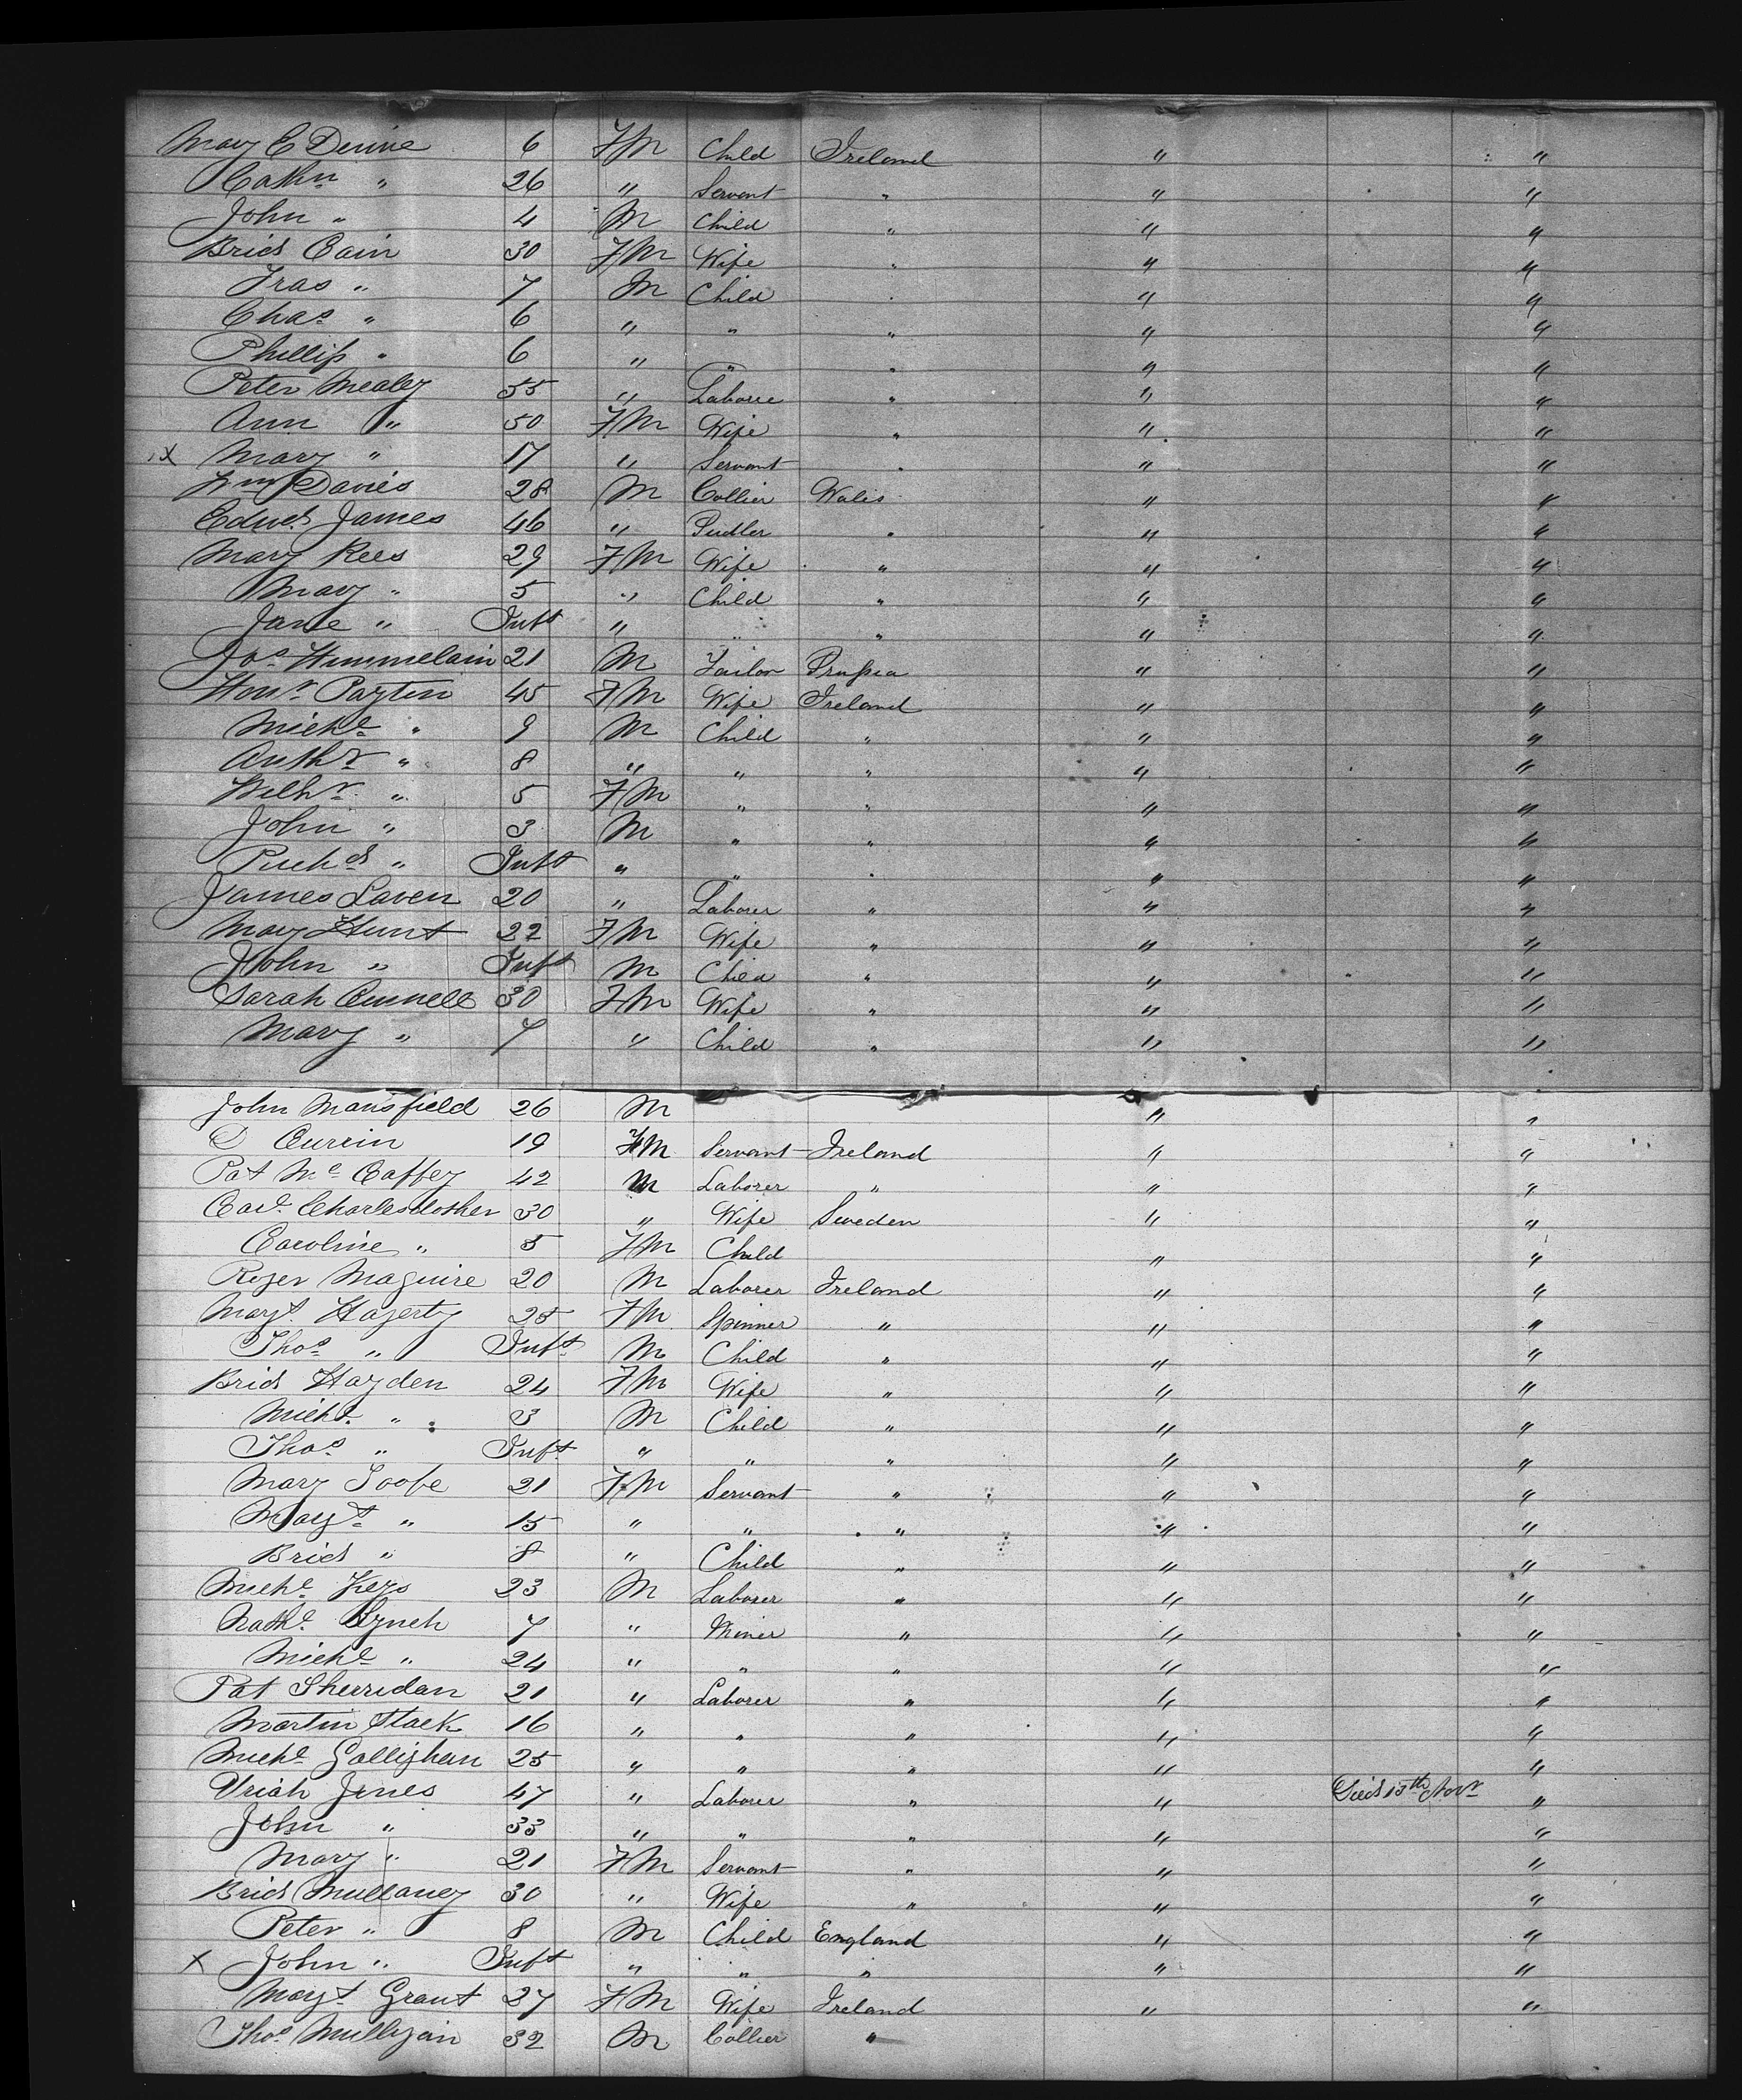 Mary E Devine 6 FM Child Ireland " "
Cathn " 26 " Servant " " "
John " 4 M Child " " "
Brid Cain 30 FM Wife " " "
Fras " 7 M Child " " "
Chas " 6 " " " " "
Phillip " 6 " " " " "
Peter Mealey 55 " Laborre " " "
Ann " 50 FM Wife " " "
x Mary " 17 " Servant " " "
Wm Davies 28 M Collier Wales " "
Edwd James 46 " Pudler " " "
Mary Rees 29 FM Wife " " "
Mary " 5 " Child " " "
Jane " Inft " " " " "
Jos Himmelain 21 M Tailor Prussia " "
Honr Payten 45 FM Wife Ireland " "
Michl " 9 M Child " " "
Anthy " 8 " " " " "
5 FM " " " "
John " 3 M " " " "
Richd " Inft " " " " "
James Laven 20 " Laborer " " "
Mary Hunt 22 FM Wife " " "
John " Inft M Chea " " "
Sarah Connell 30 FM Wife " " "
Mary " 7 " Child " " "
John Mansfield 26 M " "
Currin 19 FM Servant Ireland " "
Pat Mc Caffey 42 M Laborer " " "
30 " Wife Sweden " "
Caroline " 5 FM Child " "
Roger Maguire 20 M Laborer Ireland " "
Margt Hagerty 25 FM Spinner " " "
Thos " Inft M Child " " "
Brid Hayden 24 FM Wife " " "
Michl " 3 M Child " " "
Thos " Inft " " " " "
Mary 21 FM Servant " " "
Margt " 15 " " " " "
Brid " 8 " Child " " "
Michl Keys 23 M Laborer " " "
Nathl Lynch 7 " Miner " " "
Michl " 24 " " " " "
Pat Sherridan 21 " Laborer " " "
Martin Stack 16 " " " " "
Michl Gallighan 25 " " " " "
Uriah Jones 47 " Laborer " " Died 15th Novr "
John " 33 " " " " "
Mary " 21 FM Servant " " "
Brid Mullaney 30 " Wife " " "
Peter " 8 M Child England " "
x John " Inft " " " " "
Margt Grant 27 FM Wife Ireland " "
Thos Mulligan 32 M Collier "